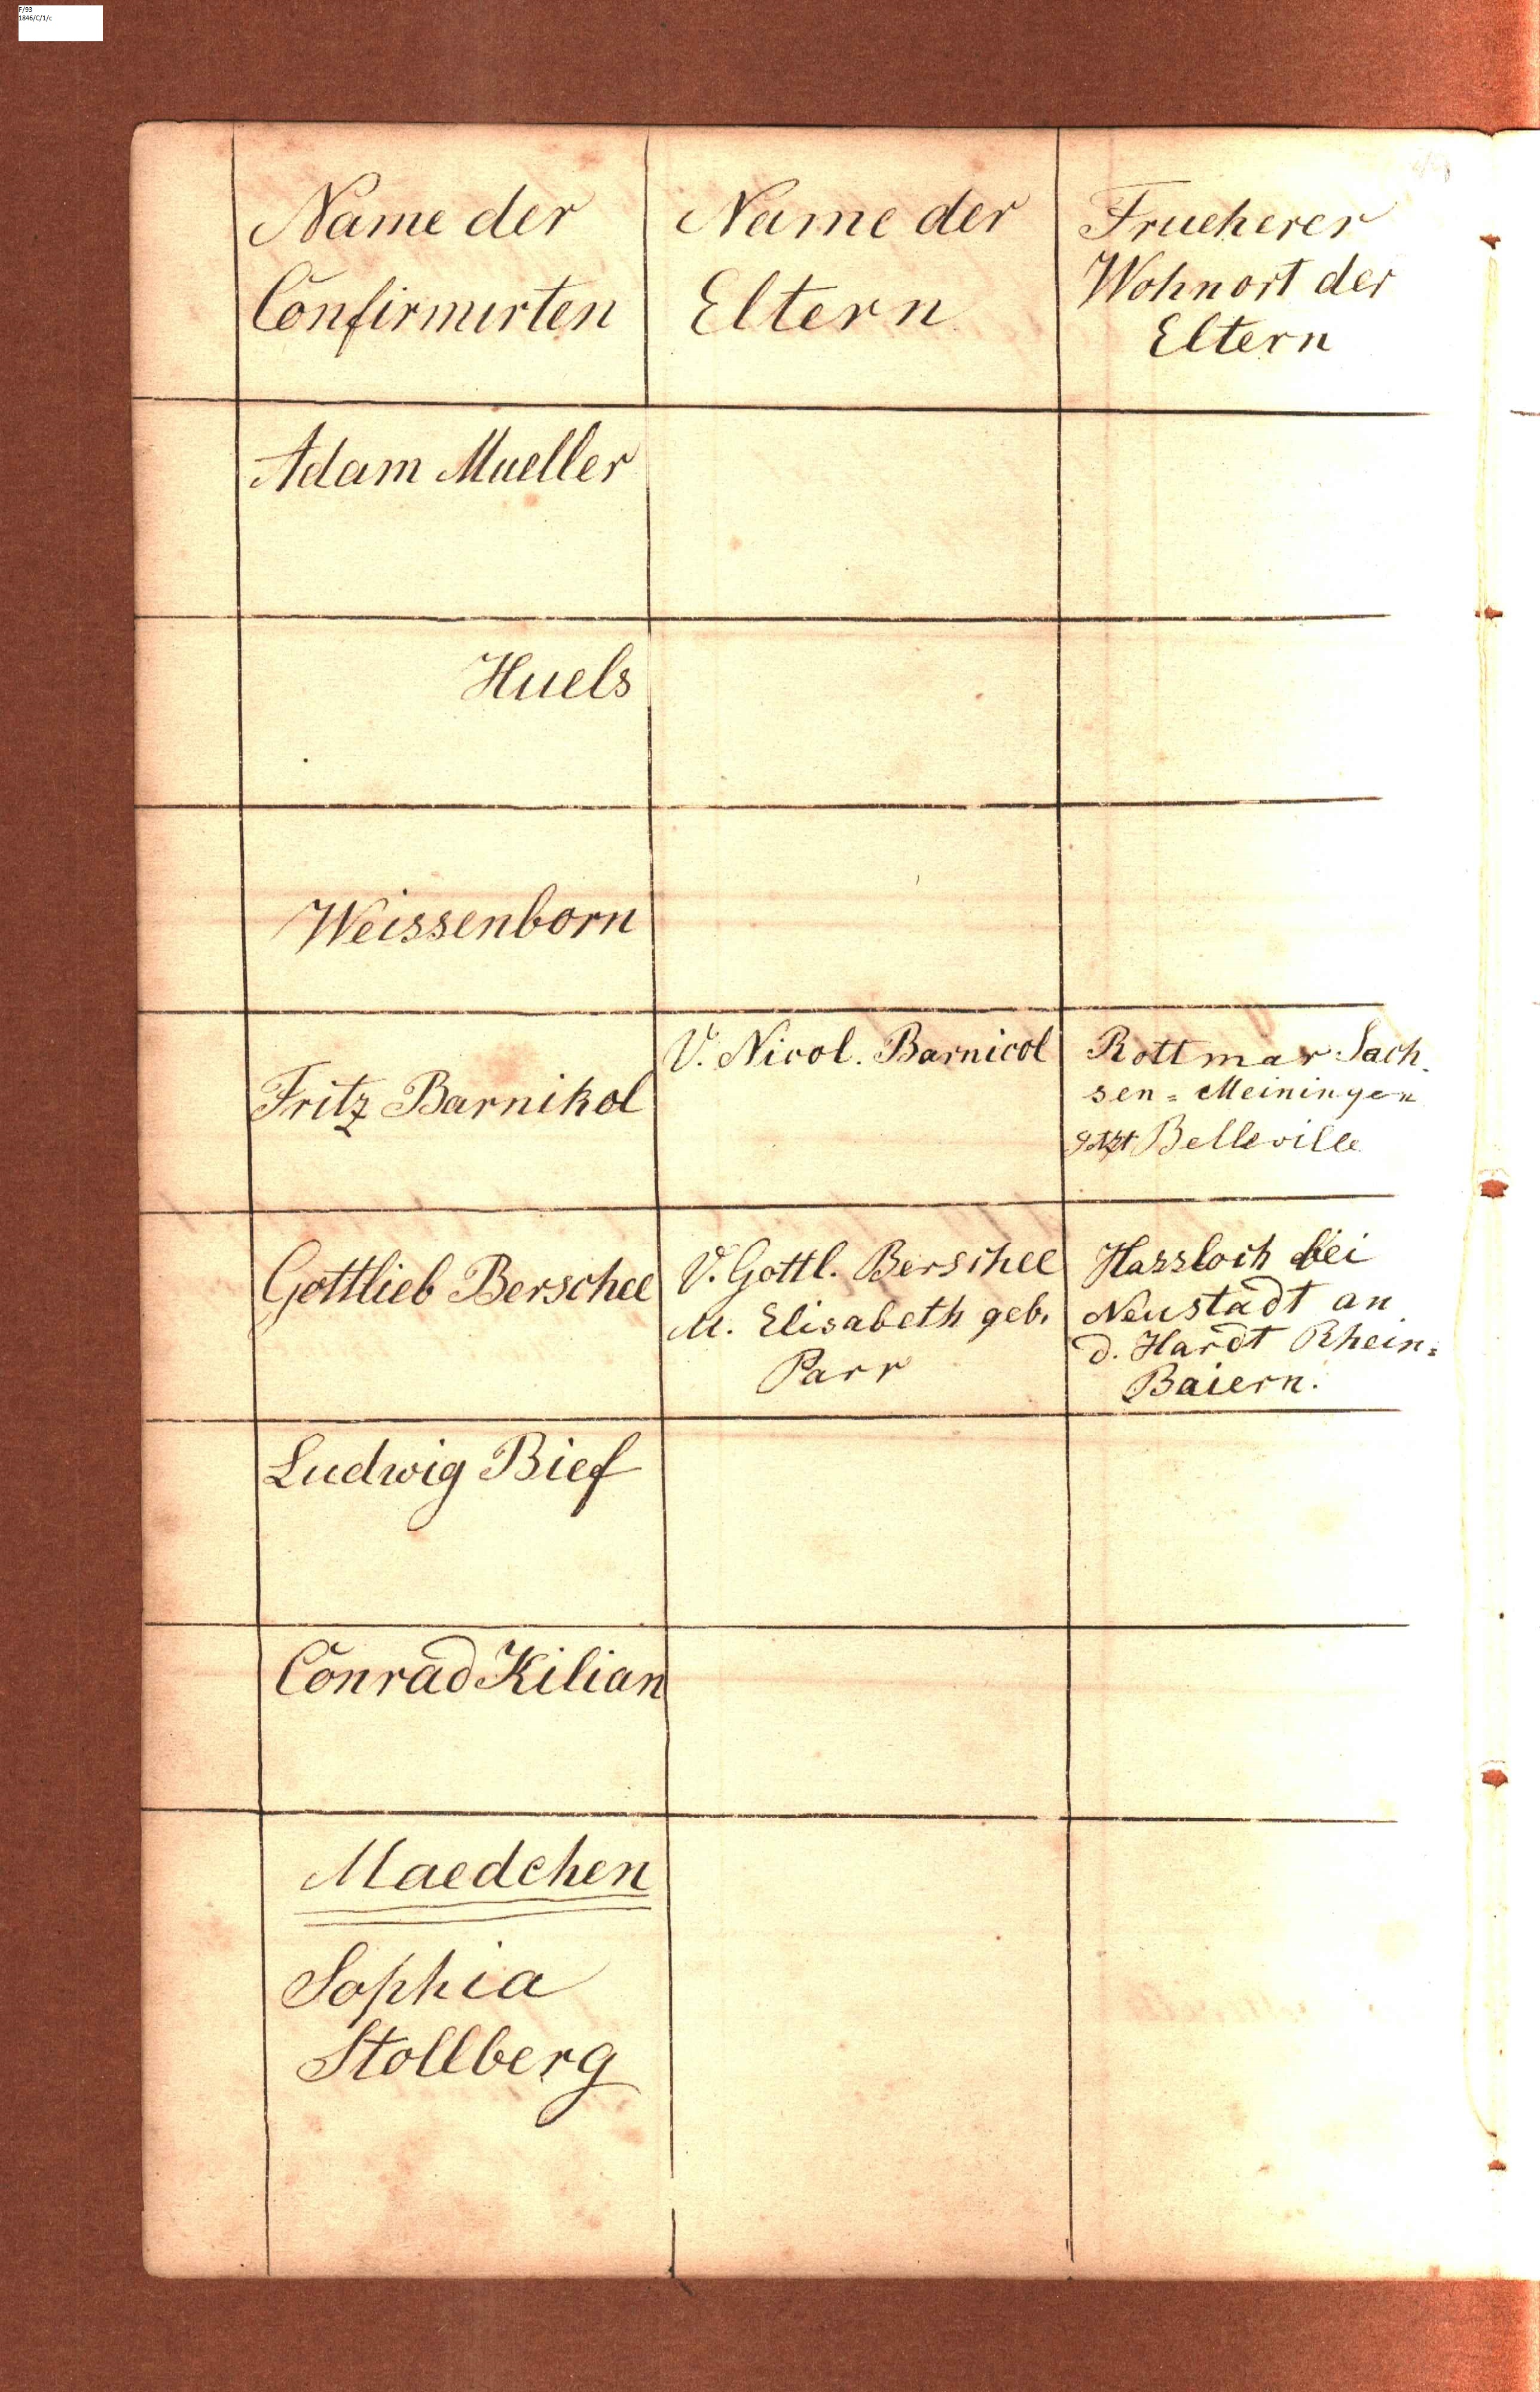 F/93
1846/C/1/c
Name der
Confirmirten
Name der
Eltern
Frueherer
Wohnort der
Eltern
Adam Mueller
Huels
Weissenborn
Fritz Barnikol
V. Nicol. Barnicol
Rottmar Sach.
sen = Meiningen
Belleville
Gottlieb Berschel
V. Gottl. Berschel
M. Elisabeth geb.
Parr
Hassloch bei
Neustadt an
d. Hardt Rhein=
Baiern.
Ludwig Bief
Conrad Kilian
Maedchen
Sophia
Stollberg